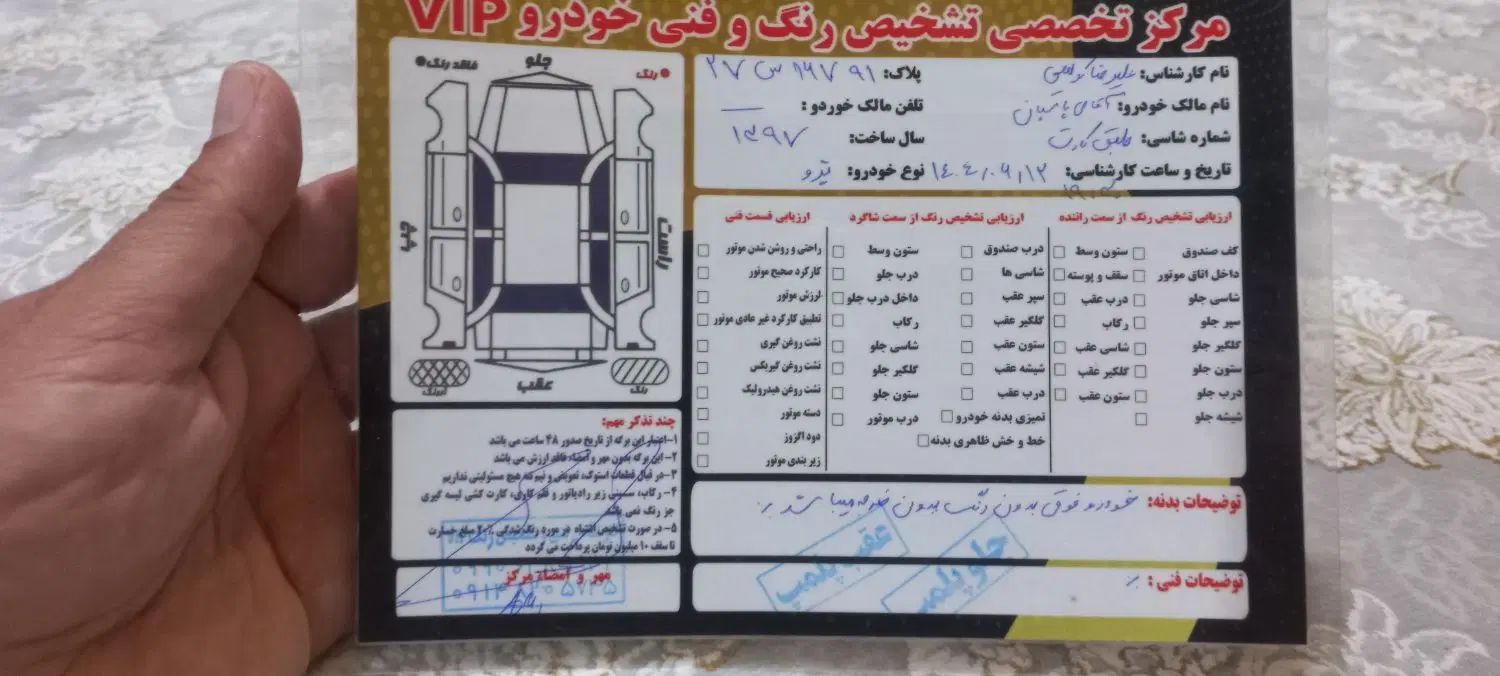 مرکز تخصصی تشخیص رنگ و فنی خودرو VIP
نام کارشناس: علیرضا پلاک: ۲۷ س ۱۶۷ ۹۱
نام مالک خودرو: آقای تلفن مالک خوردو : —
شماره شاسی: طبق کارت سال ساخت: ۱۳۹۷
تاریخ و ساعت کارشناسی: ۱۴۰۴/۰۶/۱۲ نوع خودرو:
ارزیابی تشخیص رنگ از سمت راننده
کف صندوق ستون وسط
داخل اتاق موتور سقف و پوسته
شاسی جلو درب عقب
سپر جلو رکاب
گلگیر جلو شاسی عقب
ستون جلو گلگیر عقب
درب جلو ستون عقب
شیشه جلو
ارزیابی تشخیص رنگ از سمت شاگرد
درب صندوق ستون وسط
شاسی ها درب جلو
سپر عقب داخل درب جلو
گلگیر عقب رکاب
ستون عقب شاسی جلو
شیشه عقب گلگیر جلو
درب عقب ستون جلو
تمیزی بدنه خودرو درب موتور
خط و خش ظاهری بدنه
ارزیابی قسمت فنی
راحتی و روشن شدن موتور
کارکرد صحیح موتور
لرزش موتور
تطبیق کارکرد غیر عادی موتور
نشت روغن گیری
نشت روغن گیربکس
نشت روغن هیدرولیک
دسته موتور
دود اگزوز
زیر بندی موتور
توضیحات بدنه: خودرو فوق بدون رنگ بدون ضربه میباشد
جلو پلمپ
عقب پلمپ
توضیحات فنی :
رنگ
جلو
فاقد رنگ
راست
چپ
عقب
رنگ
لیرنگ
چند تذکر مهم:
۱- اعتبار این برگه از تاریخ صدور ۴۸ ساعت می باشد
۲- این برگه بدون مهر و امضاء فاقد ارزش می باشد
۳- در قبال قطعات استوک، تعویض و نیم که هیچ مسئولیتی نداریم
۴- رکاب، سینی زیر رادیاتور و قلم کاری، کارت کشی لیسه گیری
جز رنگ نمی باشد
۵- در صورت تشخیص اشتباه در مورد رنگ شدگی ۲۰٪ مبلغ خسارت
تا سقف ۱۰ میلیون تومان پرداخت می گردد
مهر و امضاء مرکز